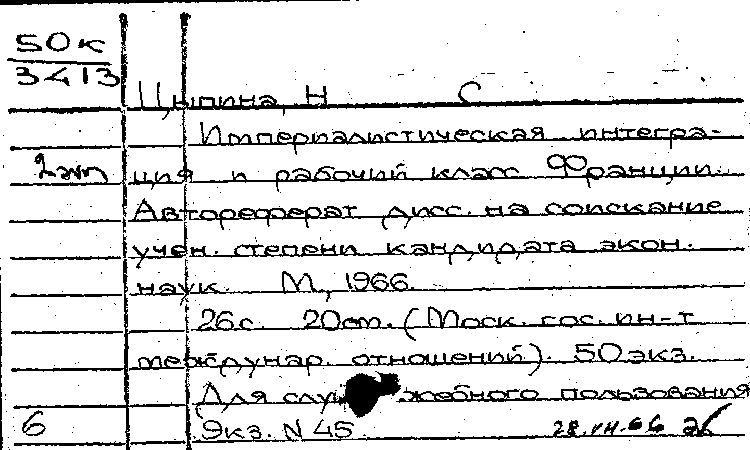 50к
3413
Цыпина, Н С
Империалистическая интегра-
2 экз ция и рабочий класс Франции.
Автореферат дисс. на соискание
учен. степени кандидата экон.
наук. М., 1966.
26с. 20см. (Моск. гос. ин-т
междунар. отношений). 50 экз.
Для служебного пользования
6 Экз. N 45 28.VII.66